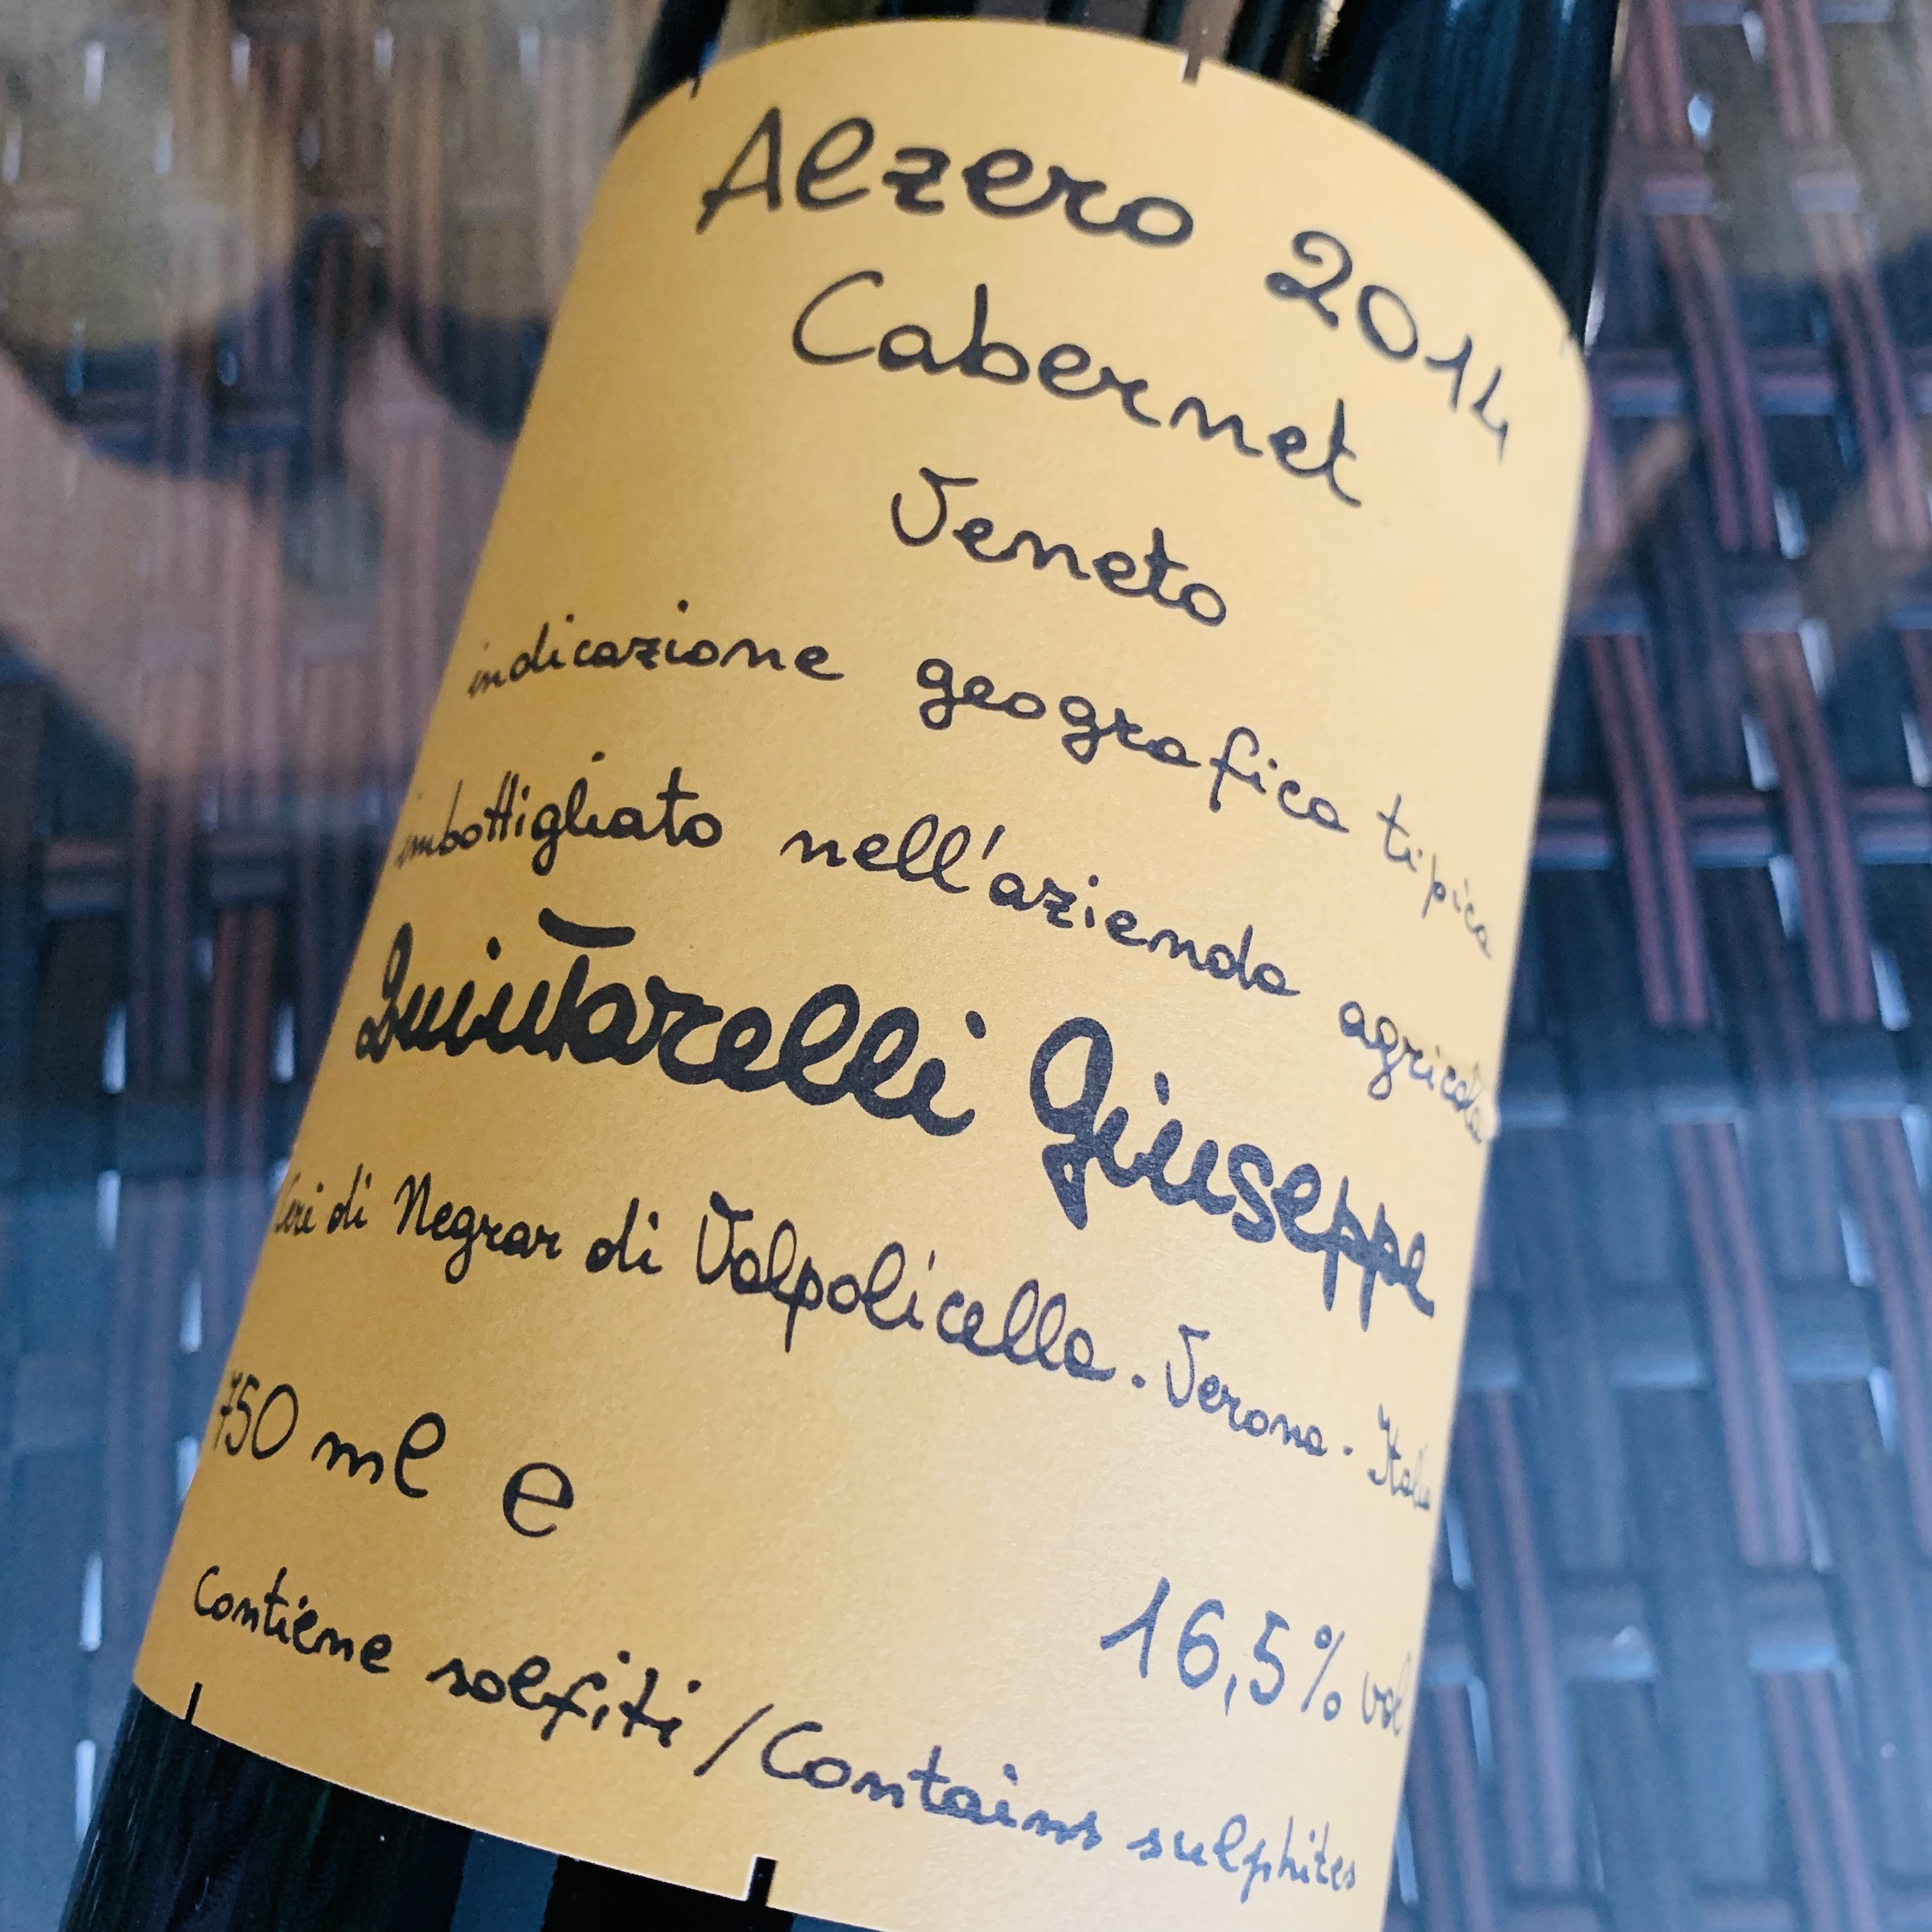 Alzero 2014
Cabernet
Veneto
indicazione geografica tipica
imbottigliato nell'azienda agricola
Quintarelli Giuseppe
di Negrar di Valpolicella . Verona . Italia
750 ml e
16,5% vol
Contiene solfiti / Contains sulphites